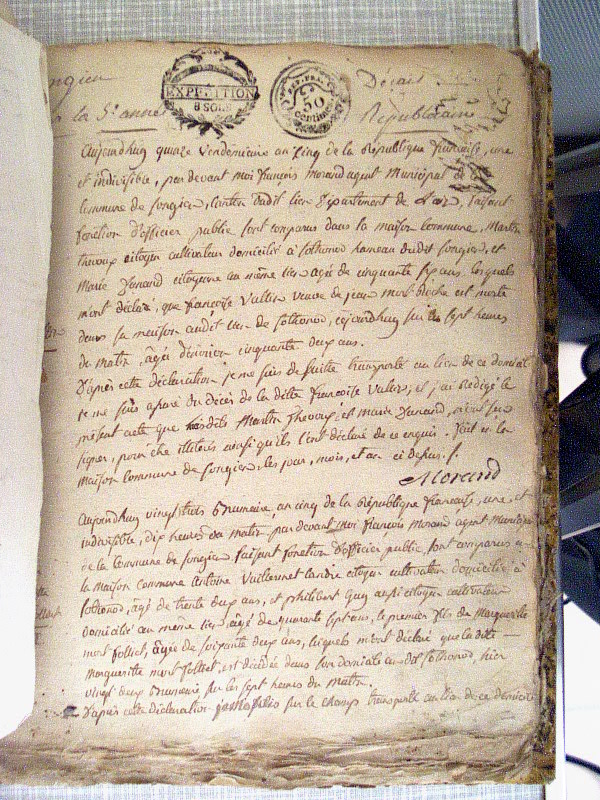 ongieu
EXPEDITION
8 SOLS
REP. FRA.
50
centimes
Décart
la 5e année
Républicain
Aujourdhuy quinze vendemiaire an cinq de la République francaise, une
et indivisible, par devant moi françois morand agent municipal de la
commune de songieu, canton dudit lieu Département de L'ain, faisant
fonction d'officier public sont comparus dans la maison commune, Martin
thevoux citoyen cultivateur domicilié à sothonod hameau dudit songieu, et
Marie Junand citoyenne au même lieu agée de cinquante six ans, lesquels
mont déclaré, que françoise Vallier veuve de jean mort est morte
dans sa maison audit lieu de sothonod, cejourdhuy sur les sept heures
du matin, agée d'environ cinquante deux ans.
D'après cette déclaration je me suis de suite transporté au lieu de ce domicile
je me suis assuré du décès de la ditte francoise Valier, et j'ai rédigé le
présent acte que lesdits Martin Thevoux, et marie Junand, n'ont su
signer, pour être illiterés ainsi qu'ils l'ont déclaré de ce enquis. fait en la
Maison Commune de songieu, les jour, mois, et an ci dessus./.
Morand
Aujourdhuy vingt trois Brumaire, an cinq de la République francaise, une, et
indivisible, dix heures du matin par devant moi françois Morand agent Municipal
de la Commune de songieu, faisant fonction d'officier public, sont comparus en
la maison commune Antoine Vuillermet Landre citoyen cultivateur domicilié à
sothonod, agé de trente deux ans, et philibert Guy aussi citoyen cultivateur
domicilié au même lieu, agé de quarante sept ans, le premier fils de Marguerite
mort folliet, agée de soixante deux ans, lesquels m'ont déclaré que la ditte
Marguerite mort folliet est décédée dans son domicile au dit sothonod, hier
vingt deux Brumaire, sur les sept heures du Matin.
D'après cette déclaration sur le champ transporté au lieu de ce domicile